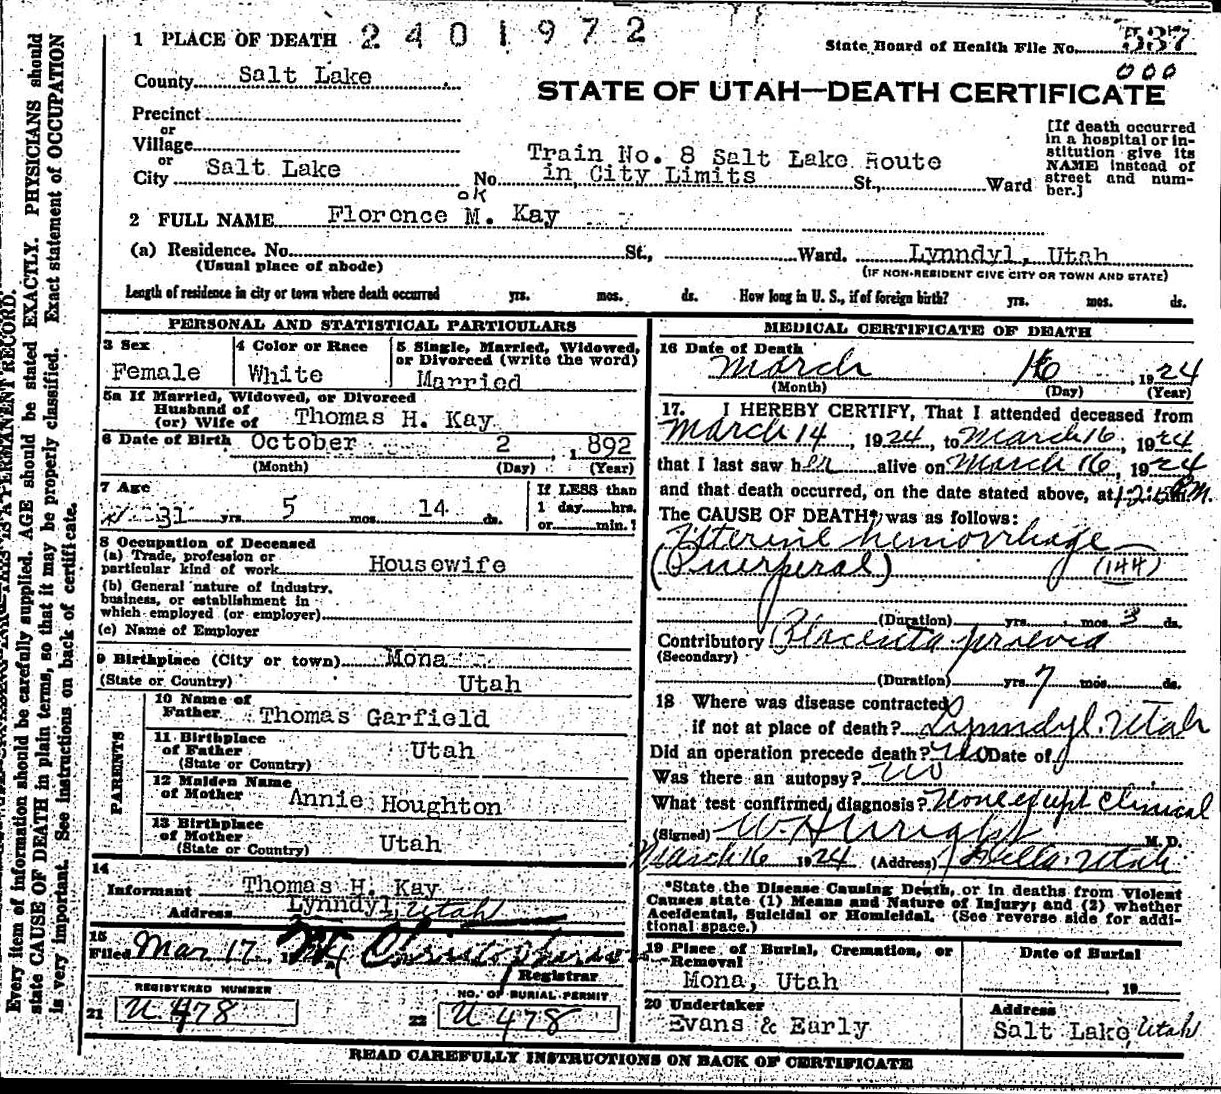 1 PLACE OF DEATH 2401972
State Board of Health File No. 537
000
County Salt Lake
STATE OF UTAH—DEATH CERTIFICATE
Precinct
or
Village
or
City Salt Lake No. Train No. 8 Salt Lake Route
in City Limits St., Ward
[If death occurred
in a hospital or in-
stitution give its
NAME instead of
street and num-
ber.]
ok
2 FULL NAME Florence M. Kay
(a) Residence. No. St., Ward. Lynndyl, Utah
(Usual place of abode) (IF NON-RESIDENT GIVE CITY OR TOWN AND STATE)
Length of residence in city or town where death occurred yrs. mos. ds. How long in U. S., if of foreign birth? yrs. mos. ds.
PERSONAL AND STATISTICAL PARTICULARS
3 Sex
Female
4 Color or Race
White
5 Single, Married, Widowed,
or Divorced (write the word)
Married
5a If Married, Widowed, or Divorced
Husband of
(or) Wife of Thomas H. Kay
6 Date of Birth October 2 , 1892
(Month) (Day) (Year)
7 Age
31 yrs. 5 mos. 14 ds.
If LESS than
1 day hrs.
or min.?
8 Occupation of Deceased
(a) Trade, profession or
particular kind of work Housewife
(b) General nature of industry,
business, or establishment in
which employed (or employer)
(c) Name of Employer
9 Birthplace (City or town) Mona
(State or Country) Utah
PARENTS
10 Name of
Father Thomas Garfield
11 Birthplace
of Father Utah
(State or Country)
12 Maiden Name
of Mother Annie Houghton
13 Birthplace
of Mother
(State or Country) Utah
14
Informant Thomas H. Kay
Address Lynndyl, Utah
15
Filed Mar 17, 1924
Registrar
REGISTERED NUMBER
21 U 478
NO. OF BURIAL PERMIT
22 U 478
MEDICAL CERTIFICATE OF DEATH
16 Date of Death
March 16, 1924
(Month) (Day) (Year)
17. I HEREBY CERTIFY, That I attended deceased from
March 14, 1924, to March 16, 1924
that I last saw her alive on March 16, 1924
and that death occurred, on the date stated above, at M.
The CAUSE OF DEATH*, was as follows:
Uterine hemorrhage
(Puerperal) (144)
(Duration) yrs. mos. 3 ds.
Contributory Placenta praevia
(Secondary)
(Duration) yrs. 7 mos. ds.
18 Where was disease contracted
if not at place of death? Lynndyl. Utah
Did an operation precede death? No Date of
Was there an autopsy? No
What test confirmed diagnosis? None except Clinical
(Signed) W. H. Wright M. D.
March 16 1924 (Address) Utah
*State the Disease Causing Death, or in deaths from Violent
Causes state (1) Means and Nature of Injury; and (2) whether
Accidental, Suicidal or Homicidal. (See reverse side for addi-
tional space.)
19 Place of Burial, Cremation, or
Removal
Mona, Utah
Date of Burial
19
20 Undertaker
Evans & Early
Address
Salt Lake, Utah
READ CAREFULLY INSTRUCTIONS ON BACK OF CERTIFICATE
IS A PERMANENT RECORD.
Every item of information should be carefully supplied. AGE should be stated EXACTLY. PHYSICIANS should
state CAUSE OF DEATH in plain terms, so that it may be properly classified. Exact statement of OCCUPATION
is very important. See instructions on back of certificate.